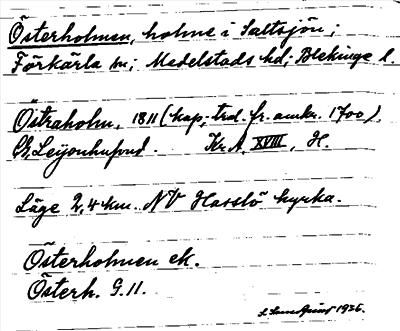 Österholmen, holme i Saltsjön;
Förkärla sn; Medelstads hd; Blekinge l.
Östraholm, 1811 (kop; trol. fr. omkr. 1700).
Ch. Leijonhufvud. Kr. A. XVIII, H.
Läge 2,4 km. NV Hasslö kyrka.
Österholmen ek.
Österh. G.11.
1936.